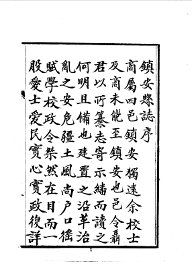 鎮安縣誌序
商屬四邑鎮安獨遠余校士
及商未能至鎮安也邑令聶
君以所纂志寄示繙而讀之
何明且備也建置之沿革治
亂之安危疆土風尚戶口徭
賦學校政令犖然在目而一
股愛士愛民實心實政復詳